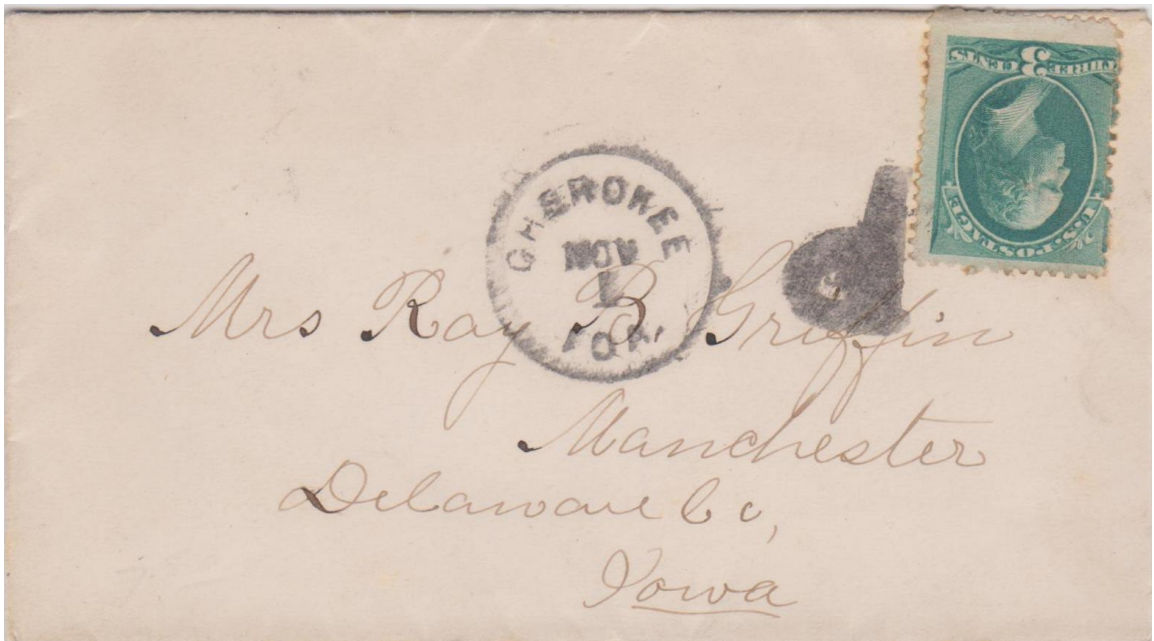 THREE 3 CENTS
U.S. POSTAGE
CHEROKEE
NOV
1
IOA.
Mrs Ray B Griffin
Manchester
Delaware Co,
Iowa